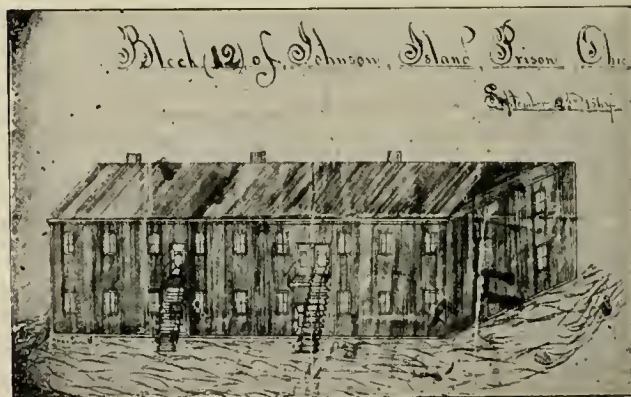 Block (12) of Johnson, Island, Prison, Ohio
September